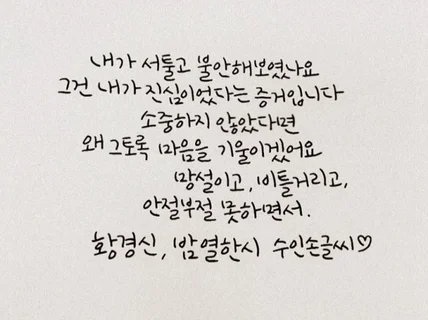 내가 서툴고 불안해보였나요
그건 내가 진심이었다는 증거입니다
소중하지 않았다면
왜 그토록 마음을 기울이겠어요
망설이고, 비틀거리고,
안절부절 못하면서.
황경신, 밤 열한시 수인손글씨♡